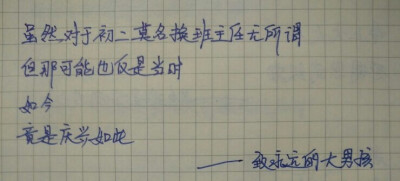 虽然对于初二莫名换班主任无所谓
但那可能也仅是当时
如今
竟是庆幸如此
——致永远的大男孩